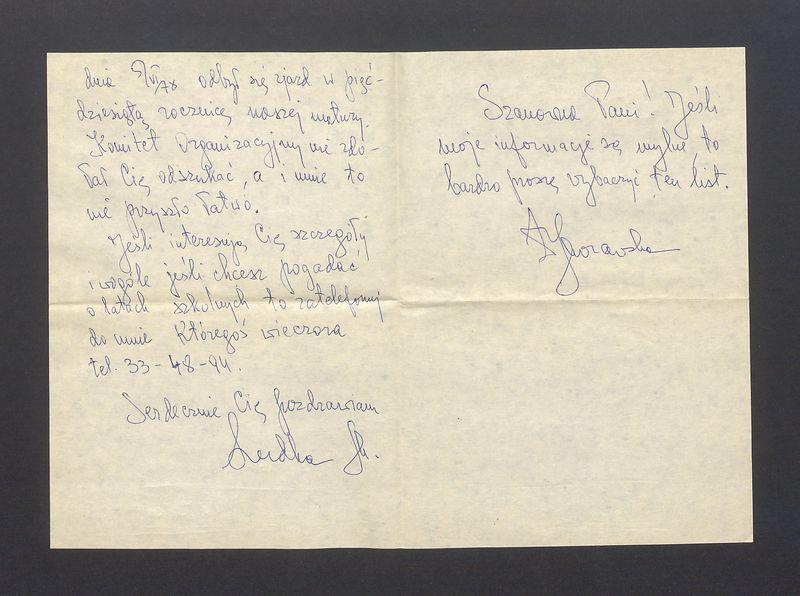 dnia 9/VI/78 odbył się zjazd w pięć-
dziesiątą rocznicę naszej matury.
Komitet Organizacyjny nie zdo-
łał Cię odszukać, a i mnie to
nie przyszło łatwo.
Jeśli interesują Cię szczegóły
i wogóle jeśli chcesz pogadać
o latach szkolnych to zatelefonuj
do mnie któregoś wieczora
tel. 33-48-94.
Serdecznie Cię pozdrawiam
Szanowna Pani! Jeśli
moje informacje są mylne, to
bardzo proszę wybaczyć ten list.